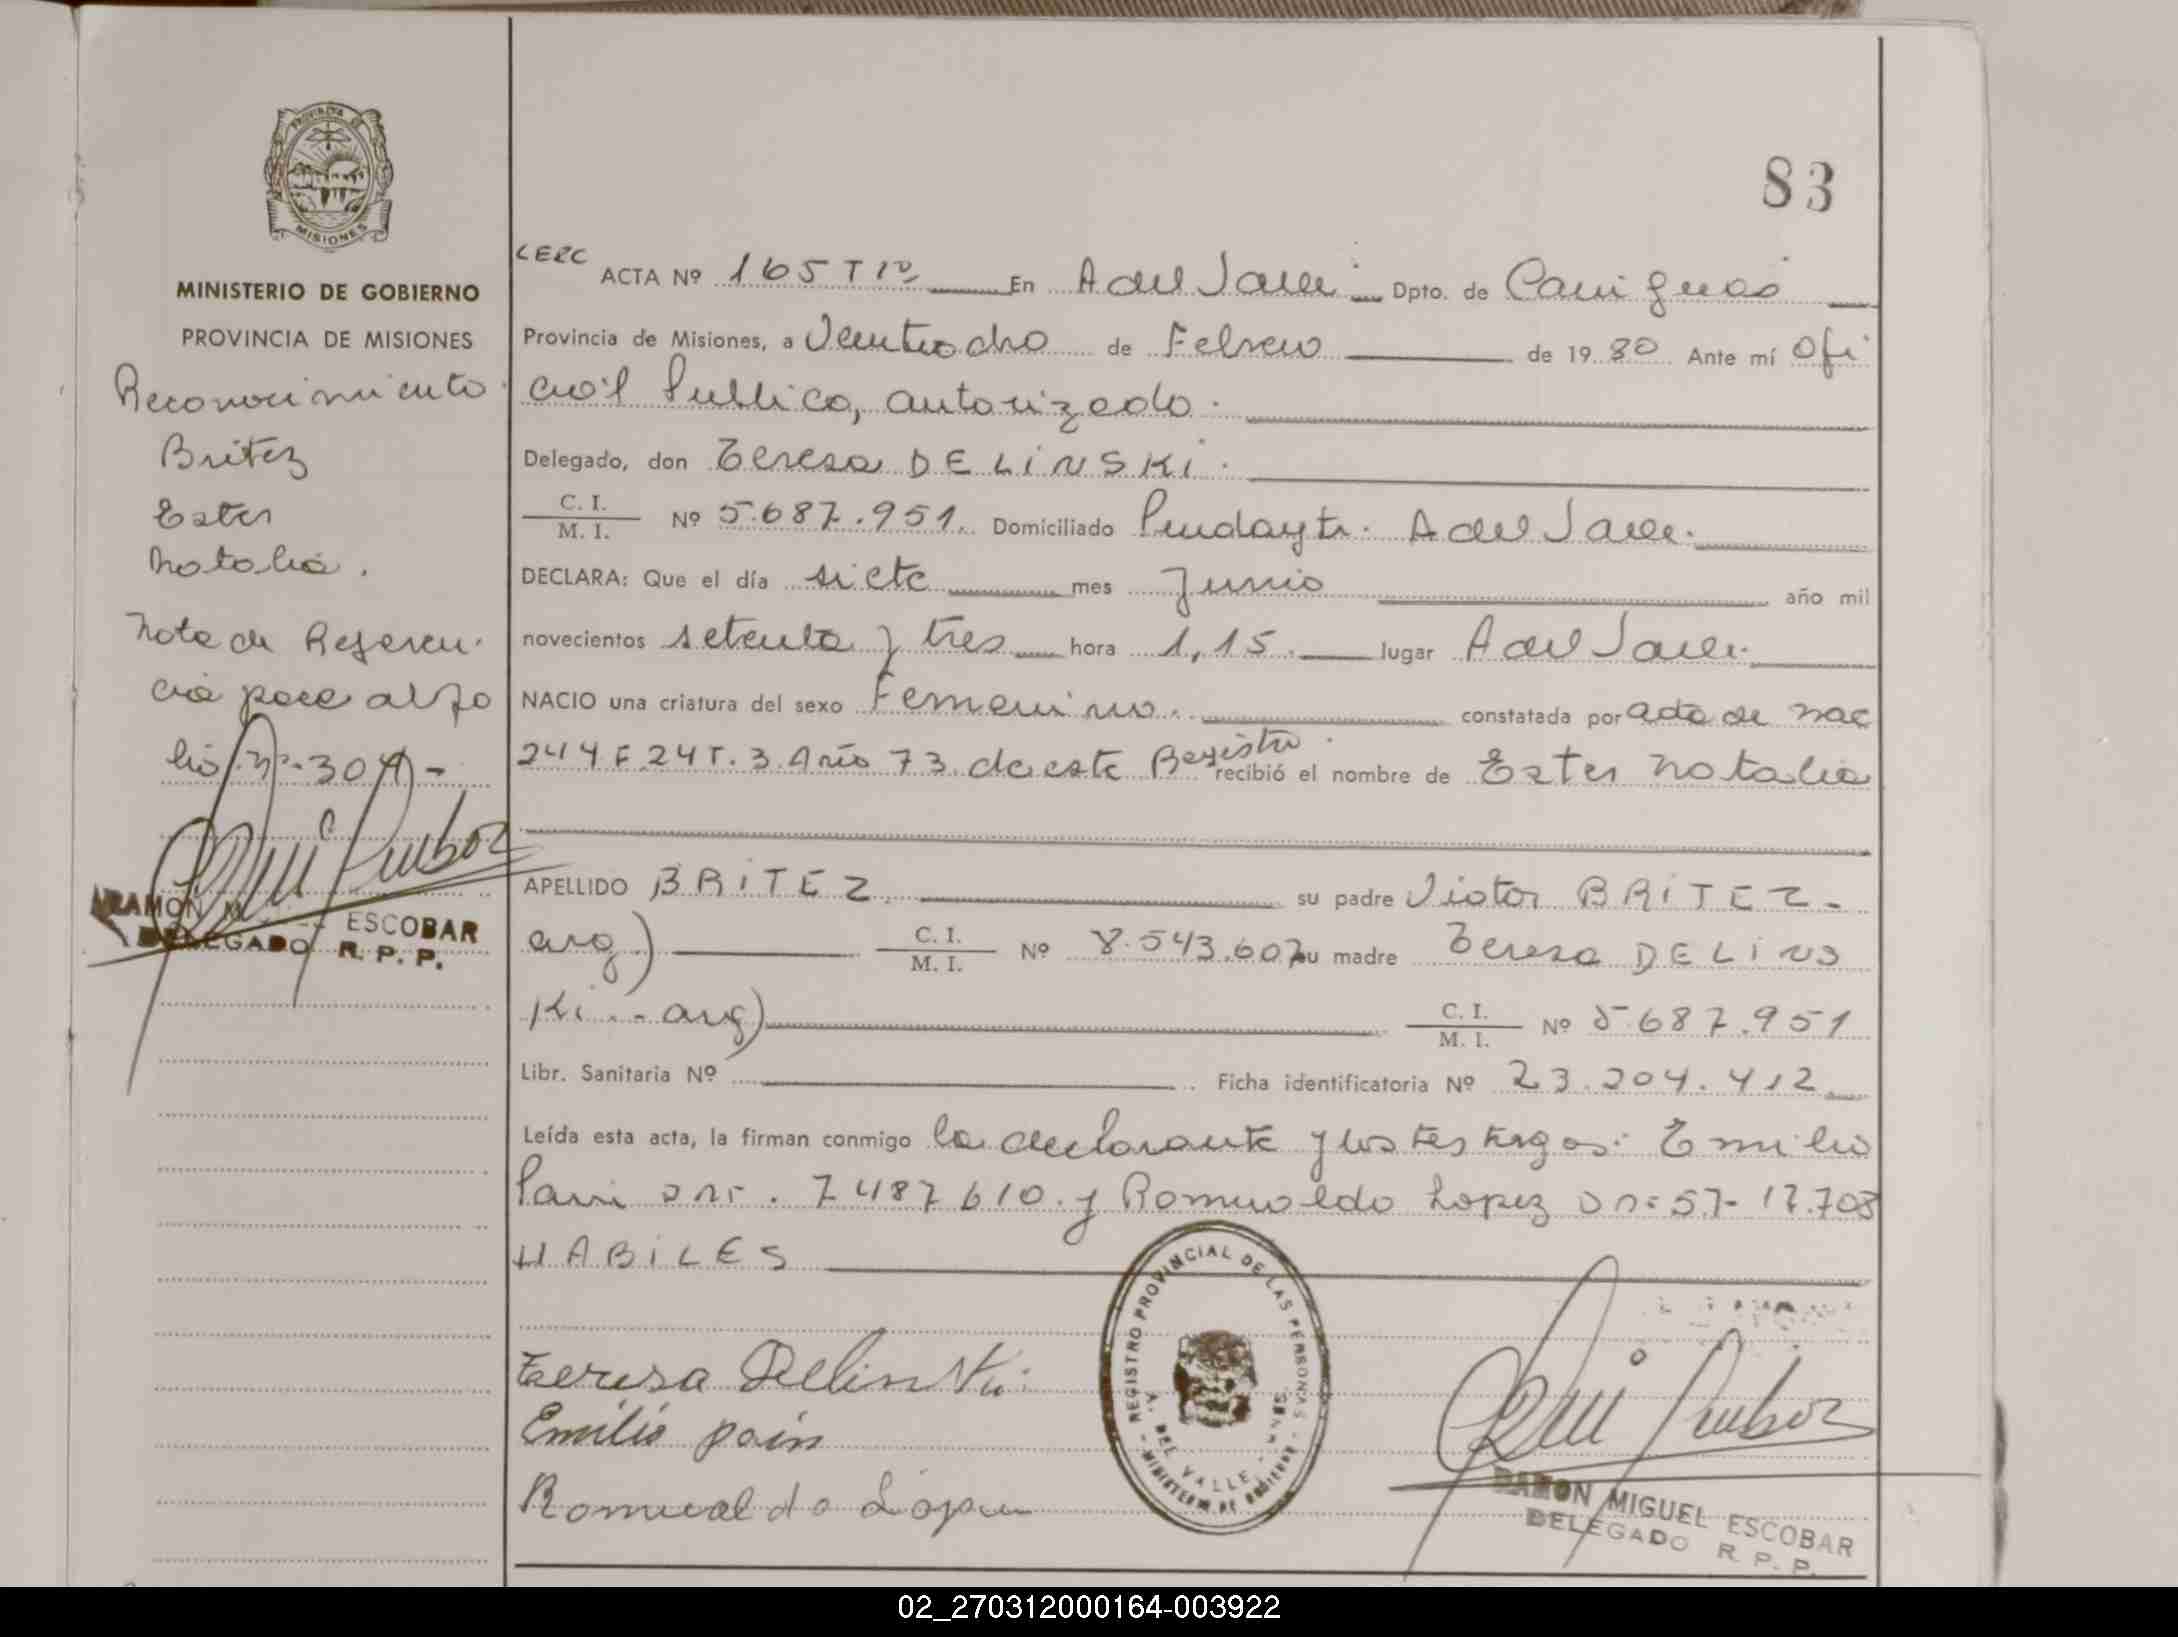 83
PROVINCIA DE
MISIONES
MINISTERIO DE GOBIERNO
PROVINCIA DE MISIONES
Reconocimiento
Britez
Ester
Natalia.
Nota de Referen-
cia pase al fo
lio Nº 304-
RAMON M ESCOBAR
DELEGADO R. P. P.
LERC ACTA Nº 165 T 1º En A del Valle Dpto. de Cainguas
Provincia de Misiones, a Veintiocho de Febrero de 1980 Ante mí Ofi
cial Publico, autorizado.
Delegado, don Teresa DELINSKI.
C. I. / M. I. Nº 5.687.951. Domiciliado Pindayti. A del Valle.
DECLARA: Que el día siete mes Junio año mil
novecientos setenta y tres hora 1,15. lugar A del Valle.
NACIO una criatura del sexo Femenino. constatada por acta de nac
244 F 24 T. 3 Año 73 de este Registro. recibió el nombre de Ester Natalia
APELLIDO BRITEZ su padre Victor BRITEZ-
arg) C. I. / M. I. Nº 8.543.607 su madre Teresa DELINS
Ki.- arg) C. I. / M. I. Nº 5.687.951
Libr. Sanitaria Nº Ficha identificatoria Nº 23.204.412
Leída esta acta, la firman conmigo la declarante y los testigos: Emilio
7487610. y Romualdo Lopez 17.708
HABILES
Teresa Delinski
Emilio
Romualdo Lopez
REGISTRO PROVINCIAL DE LAS PERSONAS
A. DEL VALLE - MSNES.
- MINISTERIO DE GOBIERNO -
RAMON MIGUEL ESCOBAR
DELEGADO R. P. P.
02_270312000164-003922